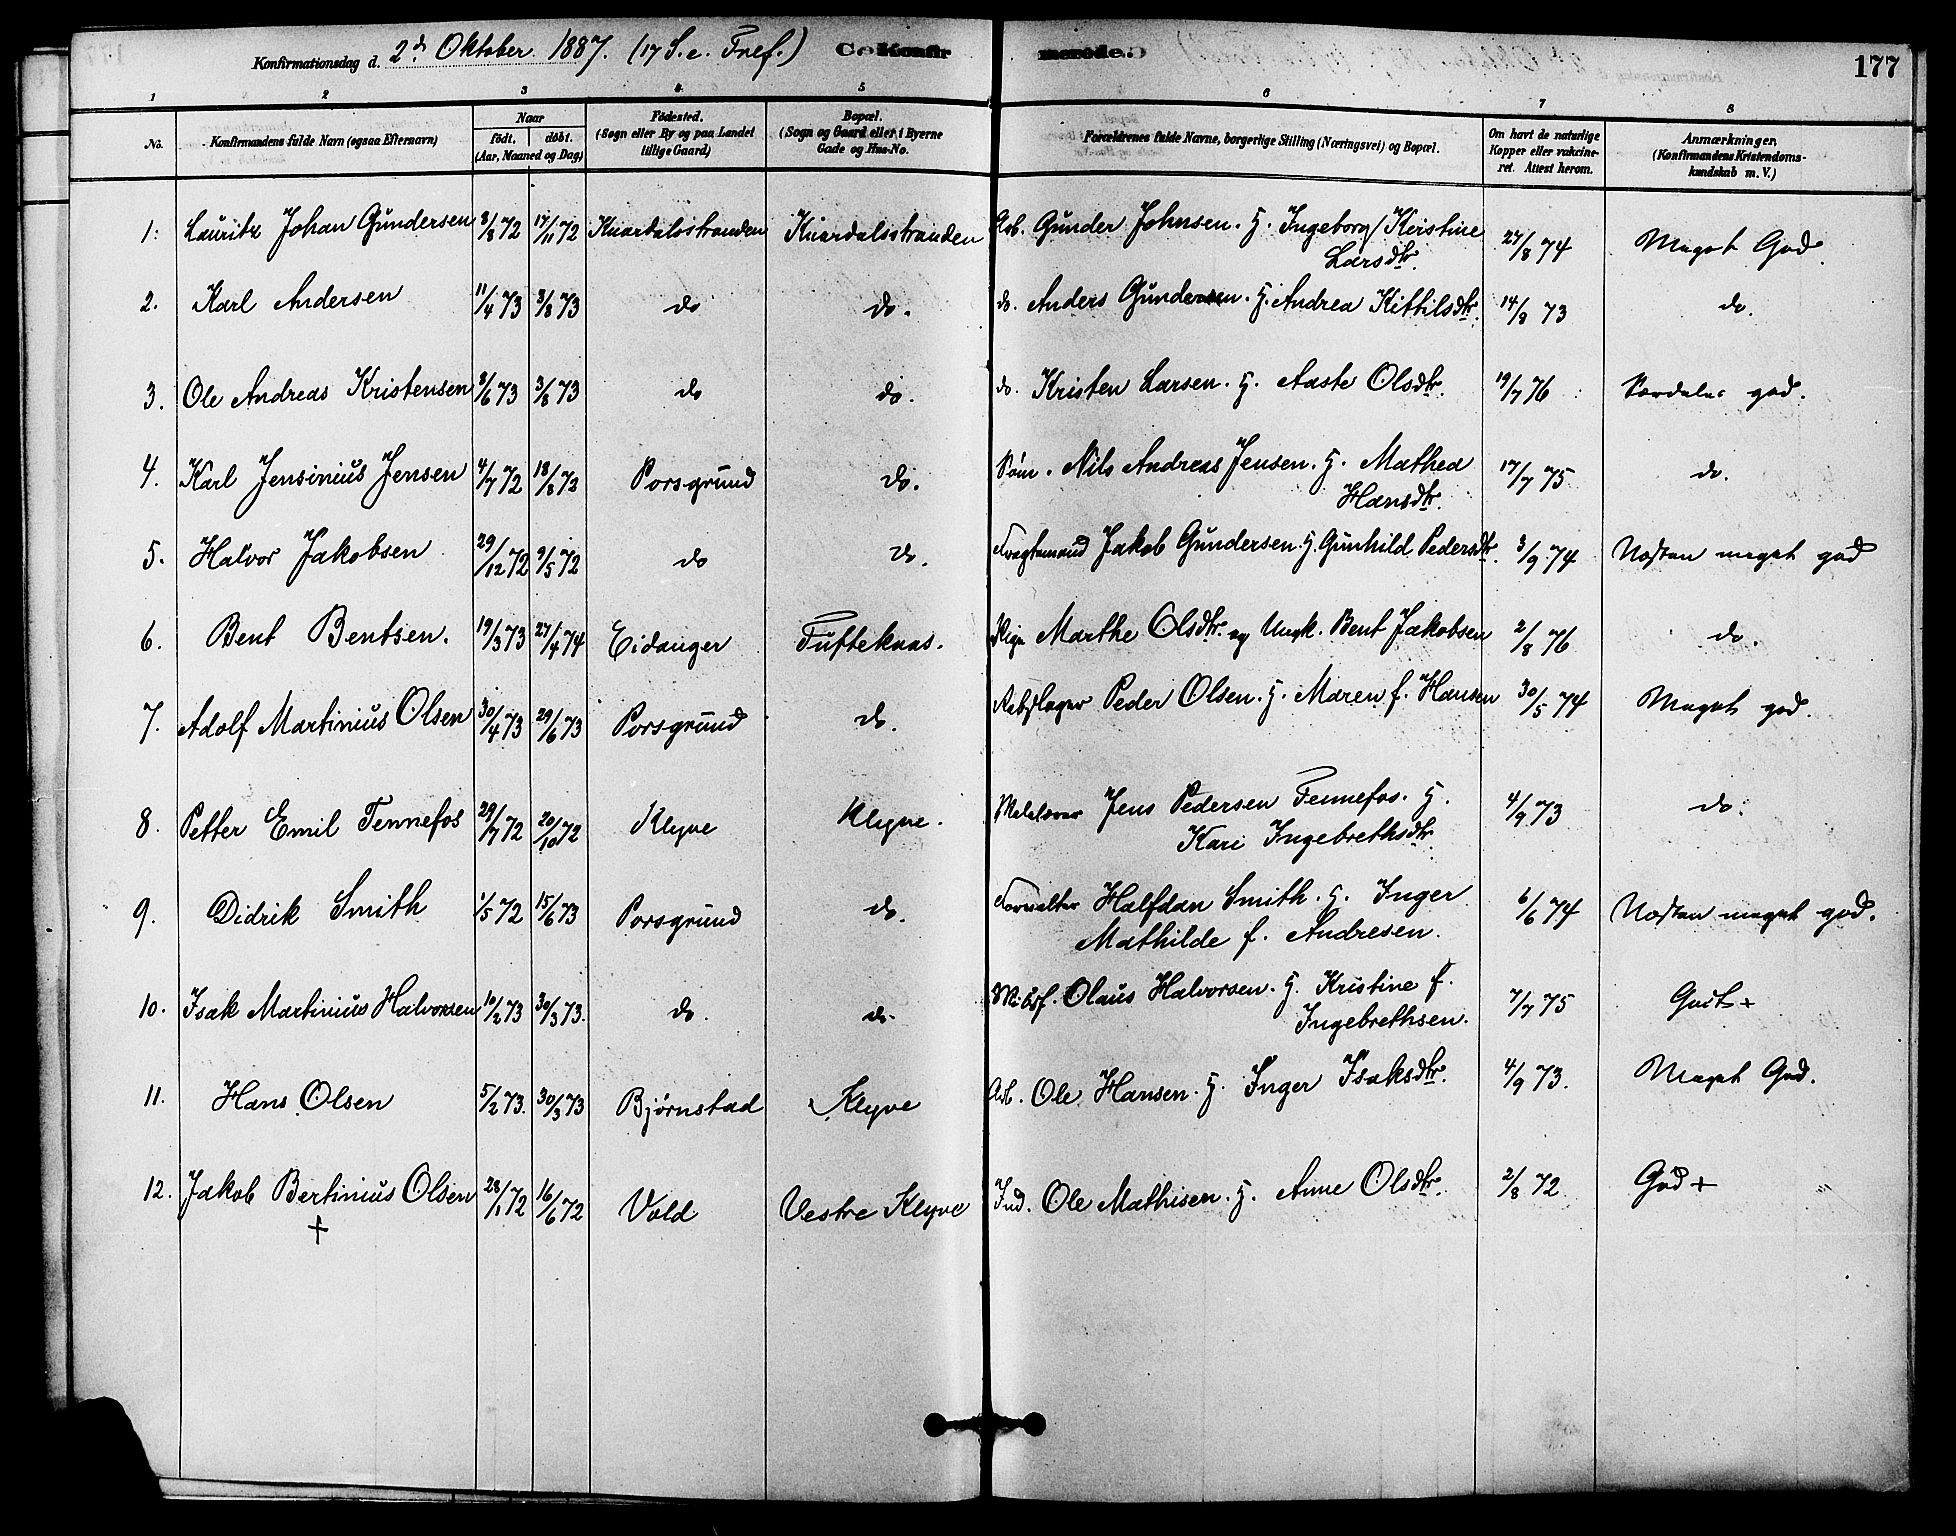 Konfirmationsdag d. 2d Oktober 1887. (17 S. e. Tref.) Konfirmerede. 177
1 2 3 4 5 6 7 8
No. Konfirmandens fulde Navn (ogsaa Efternavn) Naar födt, döbt. (Aar, Maaned og Dag) Födested. (Sogn eller By og paa Landet tillige Gaard) Bopæl. (Sogn og Gaard eller i Byerne Gade og Hus-No. Forældrenes fulde Navne, borgerlige Stilling (Næringsvei) og Bopæl. Om havt de naturlige Kopper eller vakcineret. Attest herom. Anmærkninger. (Konfirmandens Kristendomskundskab m. V.)
1. Lauritz Johan Gundersen 3/8 72 17/11 72 Knardalsstranden Knardalsstranden Arb. Gunder Johnsen. H. Ingeborg Kirstine Larsdtr. 27/8 74 Meget God.
2. Karl Andersen 11/4 73 3/8 73 do do. do. Anders Gundersen. H. Andrea Kittilsdtr. 14/8 73 do.
3. Ole Andreas Kristensen 3/6 73 3/8 73 do do. do. Kristen Larsen. H. Aaste Olsdtr. 19/7 76 Særdeles god.
4. Karl Jensinius Jensen 4/7 72 18/8 72 Porsgrund do. Søm. Nils Andreas Jensen. H. Mathea Hansdtr. 17/7 75 do.
5. Halvor Jakobsen 29/12 72 9/5 72 do do. Fragtemand Jakob Gundersen. H. Gunhild Pedersdtr. 3/9 74 Næsten meget god
6. Bent Bentsen. 19/3 73 27/4 74 Eidanger Tufteknas. Pige Marthe Olsdtr. og Ungk. Bent Jakobsen 2/8 76 do.
7. Adolf Martinius Olsen 30/4 73 29/6 73 Porsgrund do. Rebslager Peder Olsen. H. Maren f. Hansen 30/5 74 Meget god.
8. Petter Emil Tennefos 29/7 72 20/10 72 Klyve Klyve. Jens Pedersen Tennefos. H. Kari Ingebrethsdtr. 4/9 73 do.
9. Didrik Smith 1/5 72 15/6 73 Porsgrund do. Forvalter Halfdan Smith. H. Inger Mathilde f. Andresen. 6/6 74 Næsten meget god.
10. Isak Martinius Halvorsen 10/2 73 30/3 73. do. do. Olaus Halvorsen. H. Kristine f. Ingebrethsen. 7/7 75 Godt +
11. Hans Olsen 5/2 73. 30/3 73 Bjørnstad Klyve Arb. Ole Hansen. H. Inger Isaksdtr. 4/9 73. Meget God.
12. Jakob Bertinius Olsen 28/1 72 16/6 72 Vold Vestre Klyve Ind. Ole Mathisen. H. Anne Olsdtr. 2/8 72 God +
+